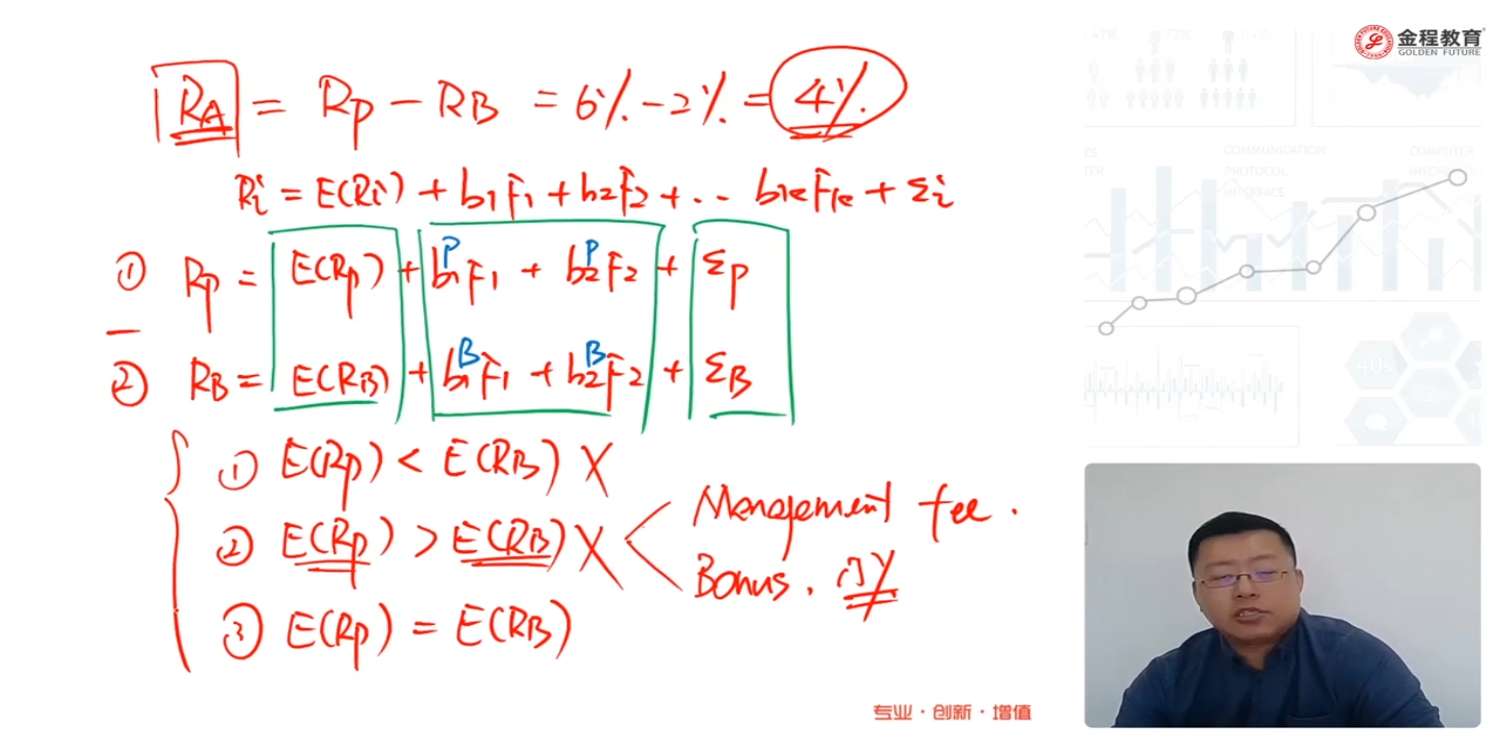 金程教育
GOLDEN FUTURE
RA = Rp - RB = 6% - 2% = 4%
Ri = E(Ri) + b1F1 + b2F2 + ... bkFk + Σi
① Rp = E(Rp) + b1^P F1 + b2^P F2 + Σp
−
② RB = E(RB) + b1^B F1 + b2^B F2 + ΣB
① E(Rp) < E(RB) X
② E(Rp) > E(RB) X
Management fee.
Bonus.
③ E(Rp) = E(RB)
COMMUNICATION
PROTOCOL
专业·创新·增值